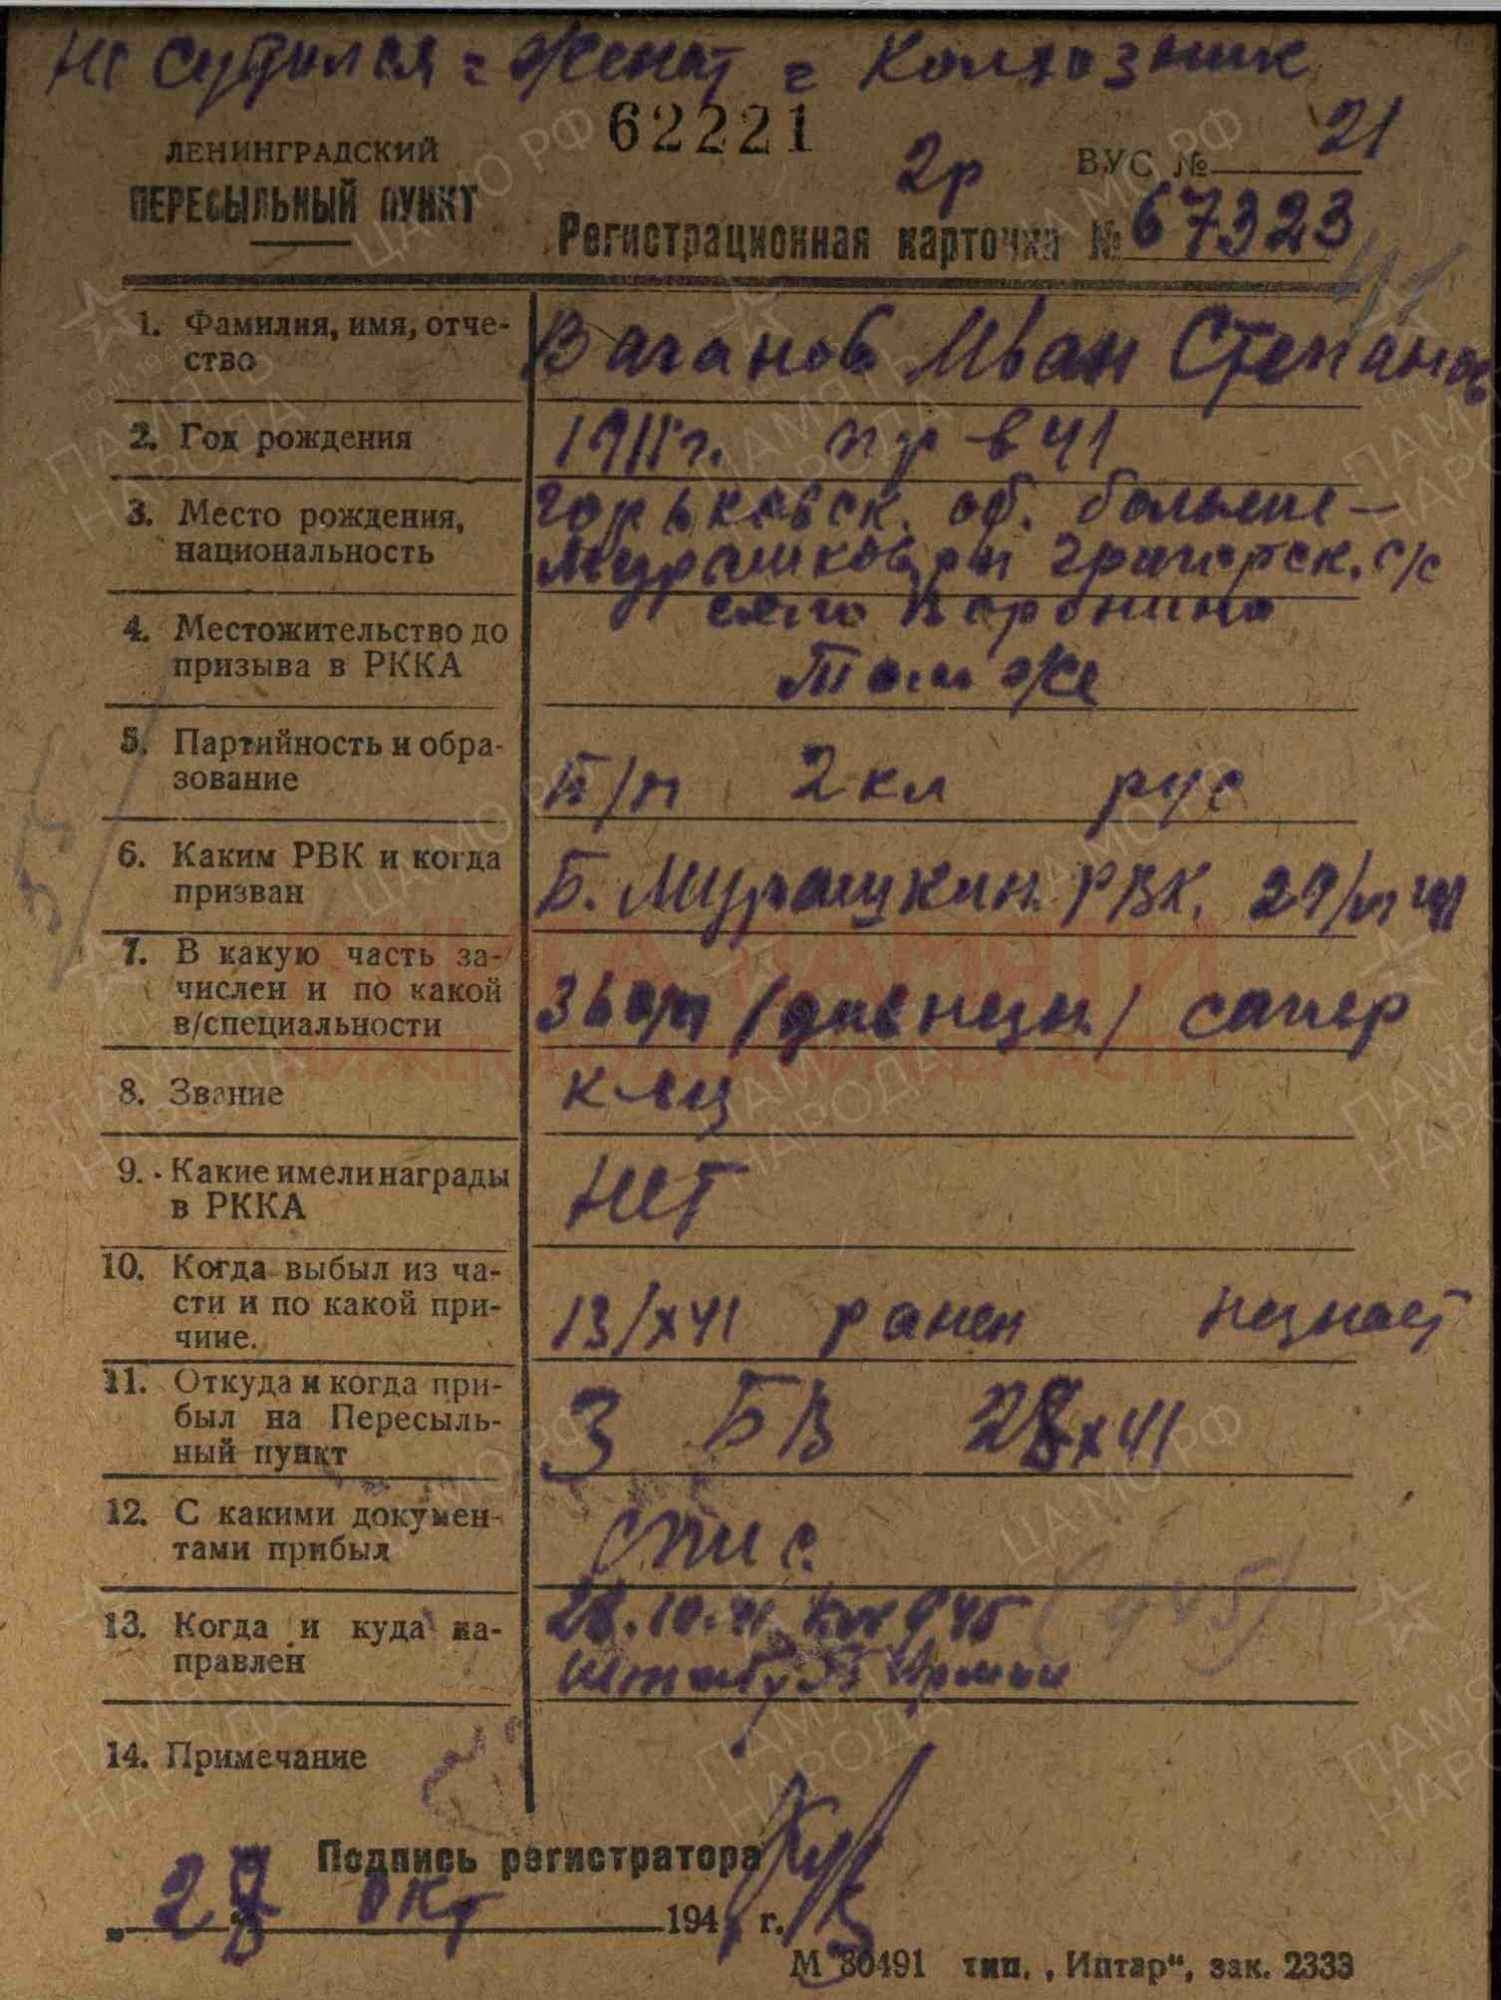 не судился = женат = Колхозник
62221
ЛЕНИНГРАДСКИЙ
ПЕРЕСЫЛЬНЫЙ ПУНКТ
2р
ВУС № 21
Регистрационная карточка № 67323
41
1. Фамилия, имя, отче-
ство
Ваганов Иван Степанов
2. Год рождения
1911г. пр в 41
3. Место рождения,
национальность
Горьковск. об. больше-
Мурашков. рн с/с
село
4. Местожительство до
призыва в РККА
Там же
5. Партийность и обра-
зование
Б/п 2 кл рус
6. Каким РВК и когда
призван
Б. Мурашкин. РВК. 41
7. В какую часть за-
числен и по какой
в/специальности
сапер
8. Звание
к-ец
9. Какие имели награды
в РККА
нет
10. Когда выбыл из ча-
сти и по какой при-
чине.
13/X 41 ранен незнает
11. Откуда и когда при-
был на Пересыль-
ный пункт
З БВ 28 X 41
12. С какими докумен-
тами прибыл
спис.
13. Когда и куда на-
правлен
28.10.41
Штабу 55 Армии
14. Примечание
55
Подпись регистратора
„ 28 окт 194 г.
М 30491 тип. „Иптар“, зак. 2333
ЦАМО РФ
ПАМЯТЬ
НАРОДА
КНИГА ПАМЯТИ
НИЖЕГОРОДСКОЙ ОБЛАСТИ